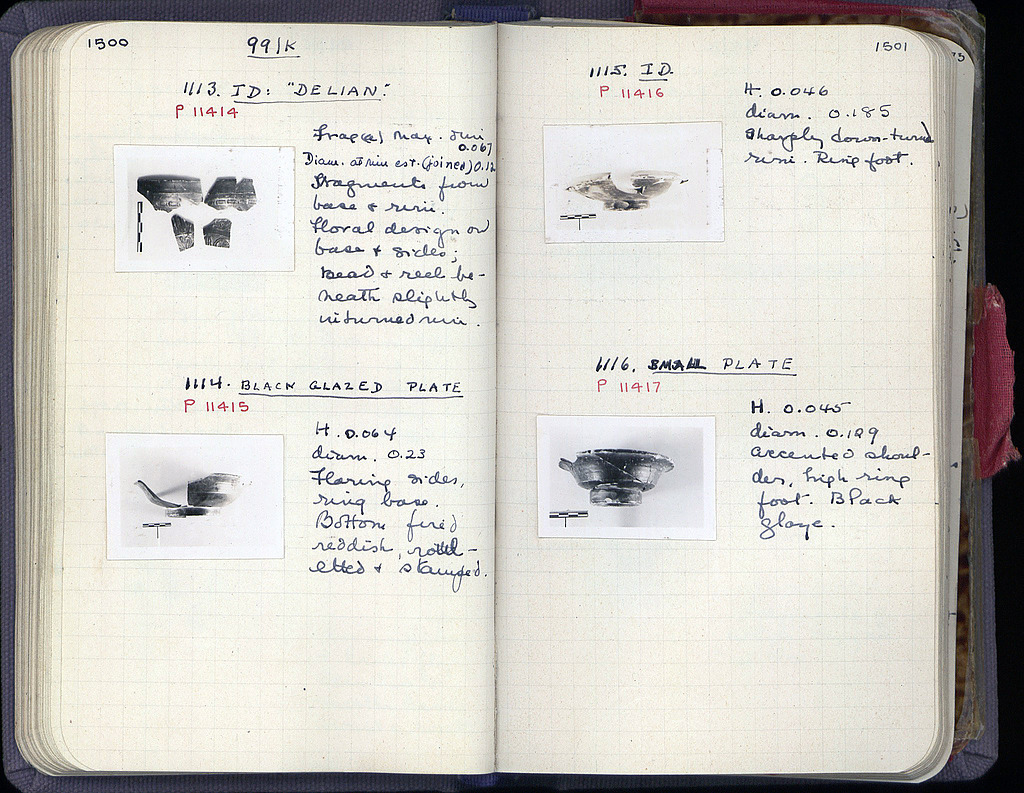 1500
99/K
1113. ID: "DELIAN".
P 11414
Frag(a) max. dim.
0.067
Diam. at rim est. (joined) 0.12
Fragments from
base & rim.
Floral design on
base & sides;
bead & reel be-
neath slightly
inturned rim.
1114. BLACK GLAZED PLATE
P 11415
H. 0.064
diam. 0.23
Flaring sides,
ring base.
Bottom fired
reddish, roul-
etted & stamped.
1501
1115. ID.
P 11416
H. 0.046
diam. 0.185
Sharply down-turned
rim. Ring foot.
1116. SMALL PLATE
P 11417
H. 0.045
diam. 0.129
accented shoul-
der, high ring
foot. Black
glaze.